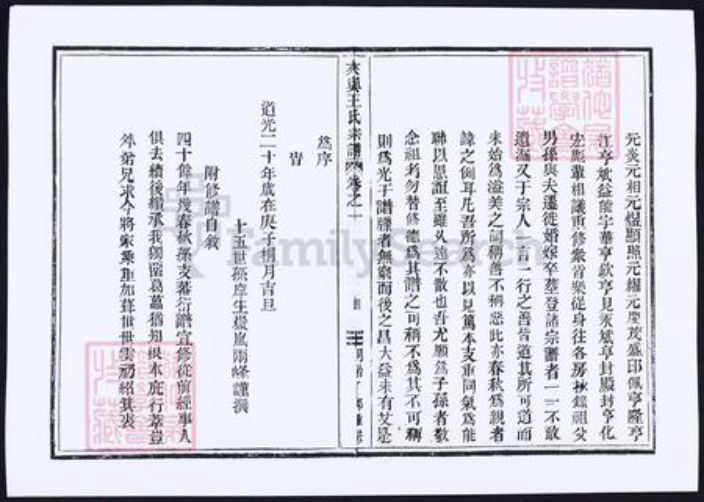 元炎元相元煜顯照元耀元慶茂盛邱佩亨隆亨
江亨斌益能字華亨欽亨見永斌亨封殿封亨化
宏彪輩相議重修眾皆樂從身往各房抄錄祖父
男孫與夫遷徙婚嫁卒葬登諸宗譜者一一不敢
遺漏又于宗人一言一行之善皆道其所可道而
未始為溢美之詞稱善不稱惡此亦春秋為親者
諱之例耳凡吾所為亦以見篤本支重同氣為能
聯以恩誼至雖久遠不散也吾尤願為子孫者數
念祖考勿替修德為其譜之可稱不為其不可稱
則為光于譜牒者無窮而後之昌大益未有艾是
為序
旹
道光二十年歲在庚子桐月吉旦
十五世孫庠生嶽嵐雨峰謹撰
附修譜自敘
四十餘年幾春秋孫支蕃衍譜宜修從前經事人
俱去續後繼承我獨留葛藟猶知根本庇行葦豈
外弟兄求今將家乘重加葺世世雲礽紹其裘
夾輿王氏宗譜 卷之一
猶他譜學會特藏
猶他譜學會特藏
FamilySearch